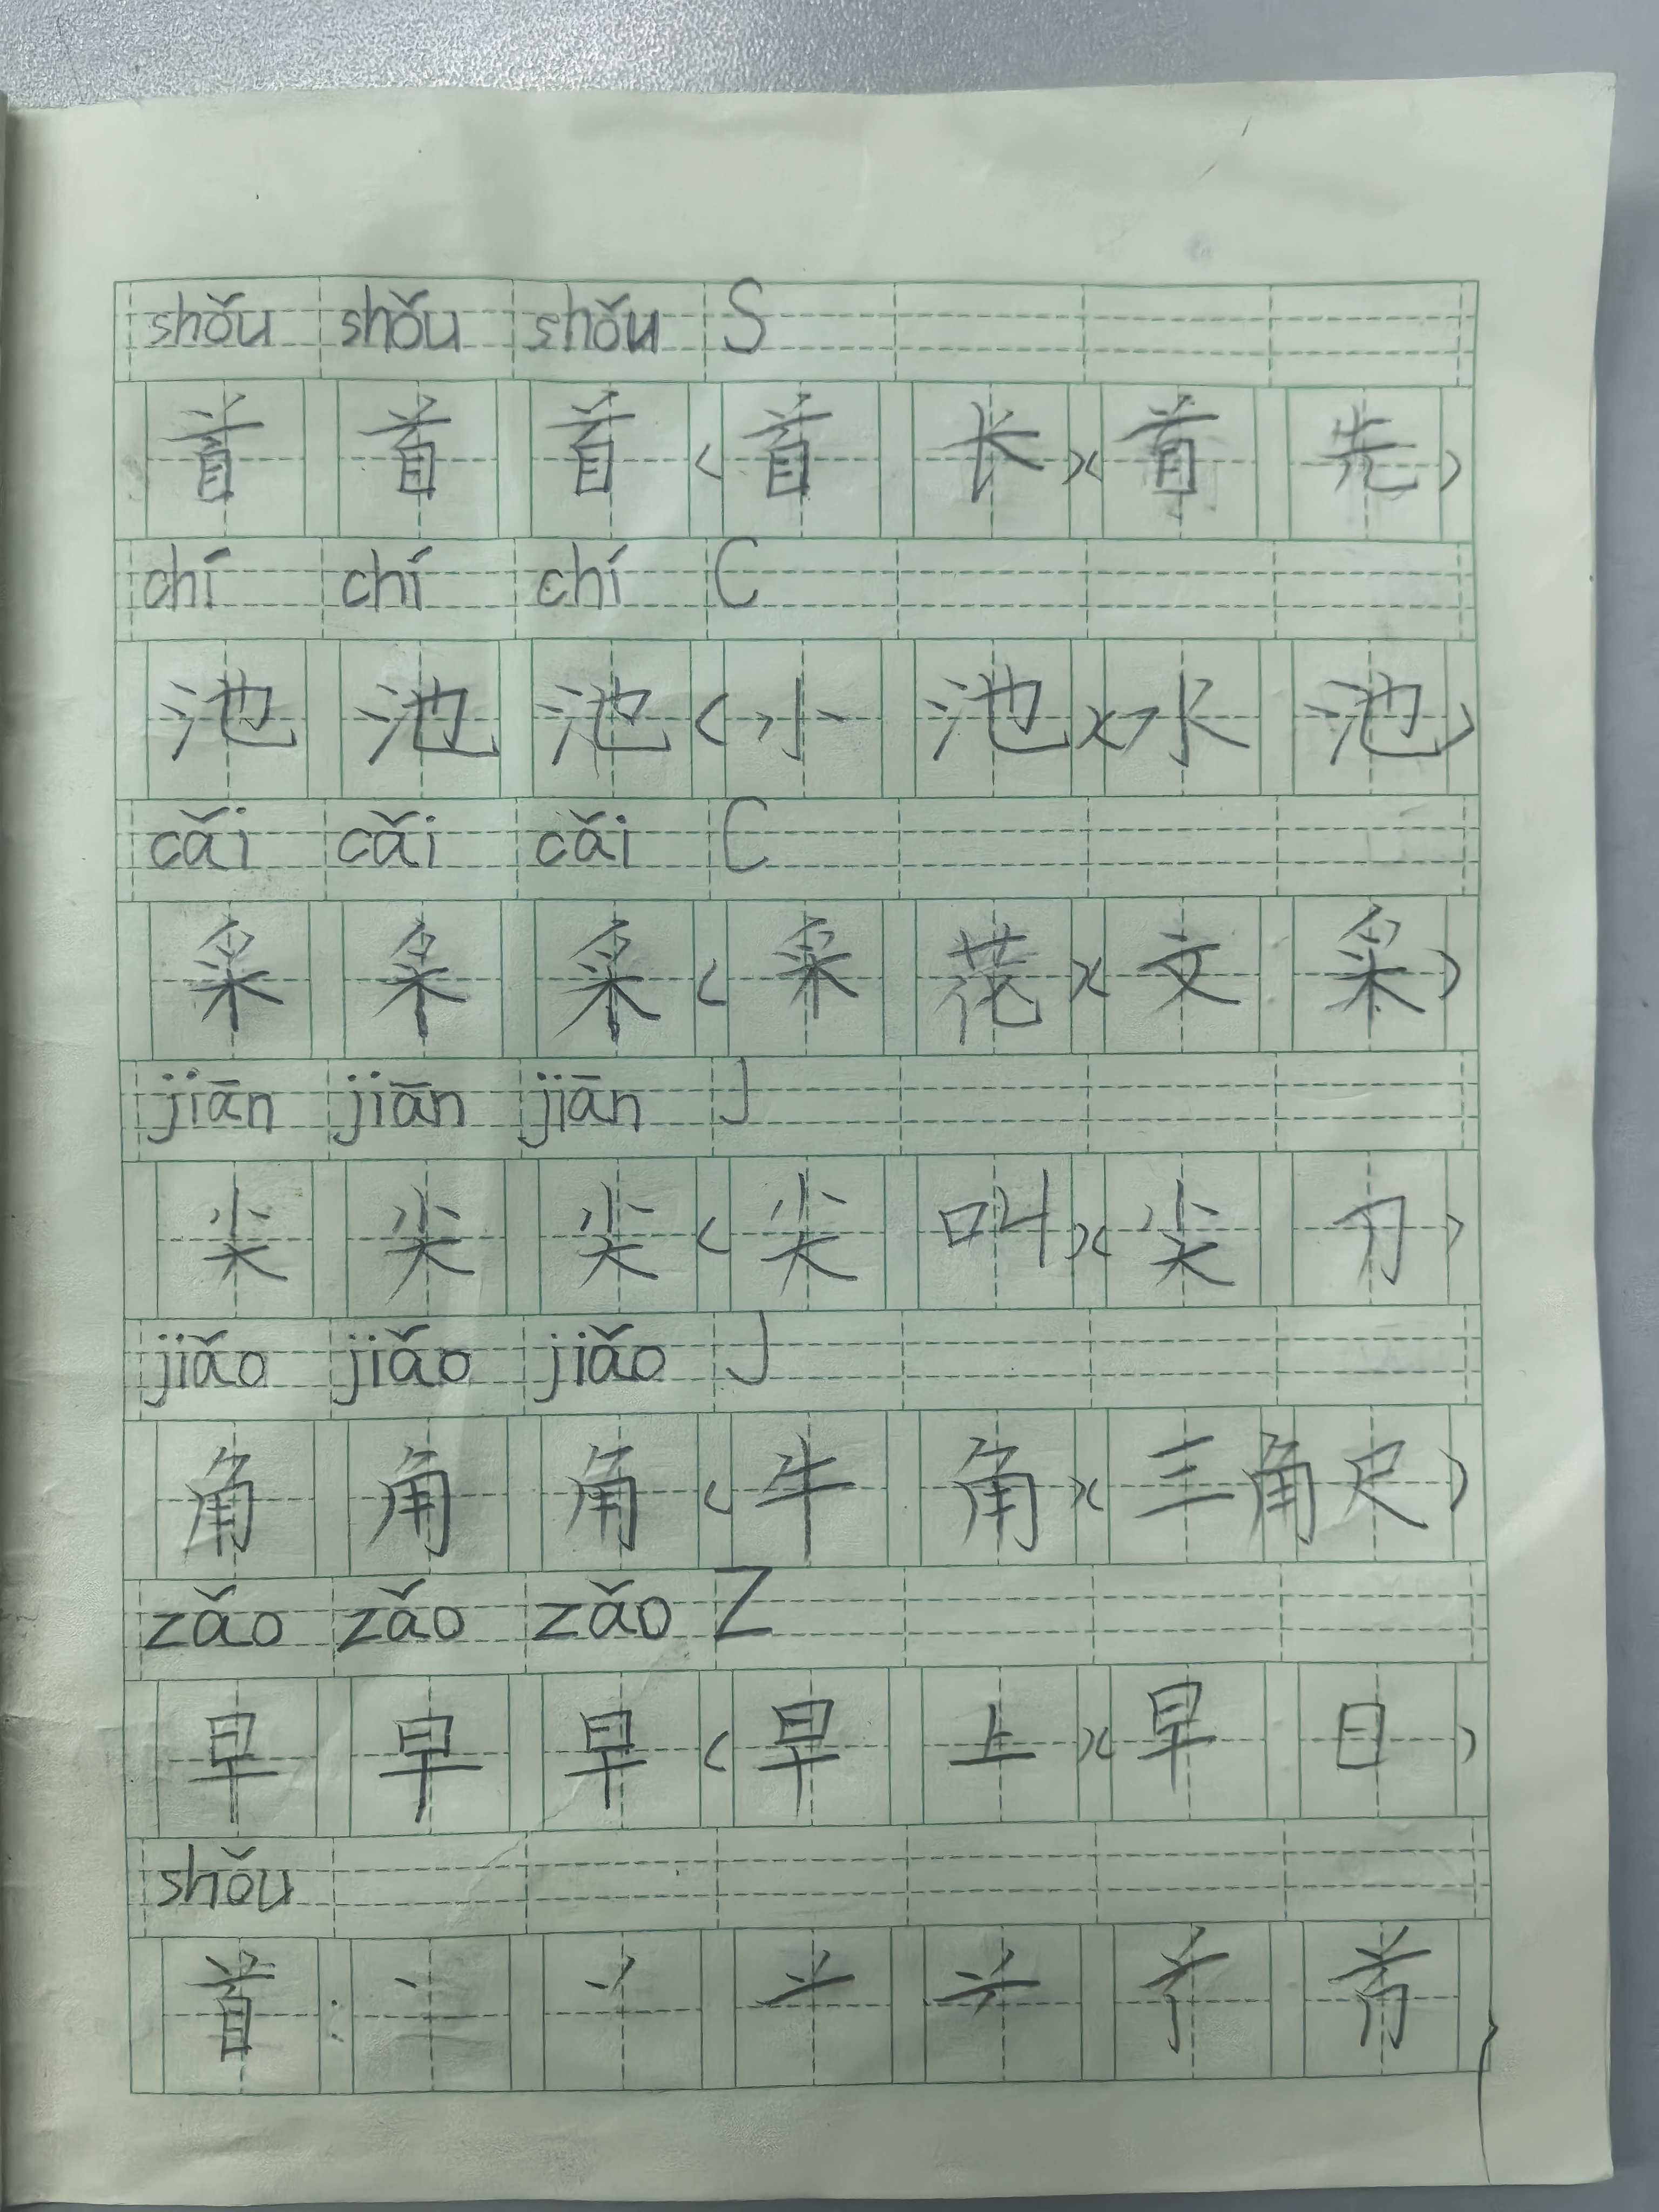 shǒu shǒu shǒu S
首 首 首 (首 长)(首 先)
chí chí chí C
池 池 池 (小 池)(水 池)
cǎi cǎi cǎi C
采 采 采 (采 花)(文 采)
jiān jiān jiān J
尖 尖 尖 (尖 叫)(尖 刀)
jiǎo jiǎo jiǎo J
角 角 角 (牛 角)(三角尺)
zǎo zǎo zǎo Z
早 早 早 (早 上)(早 日)
shǒu
首 : 丶